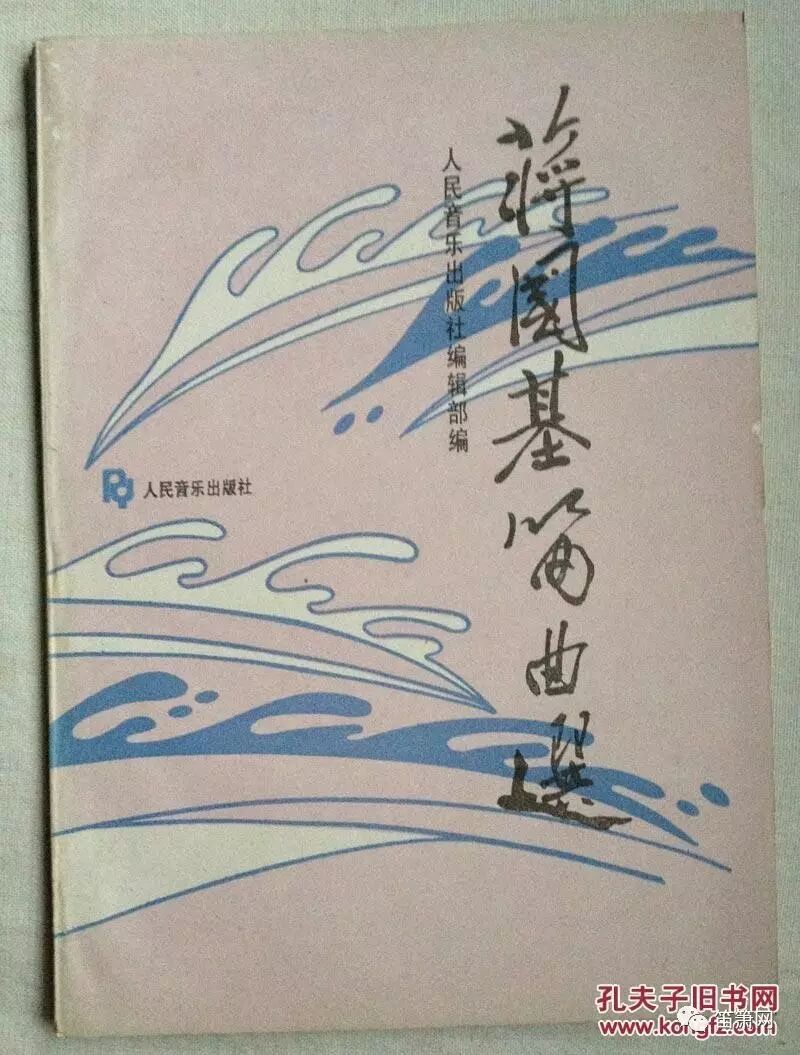 蔣國基笛曲選
人民音乐出版社编辑部编
人民音乐出版社
孔夫子旧书网
笛箫网
www.kongfz.com